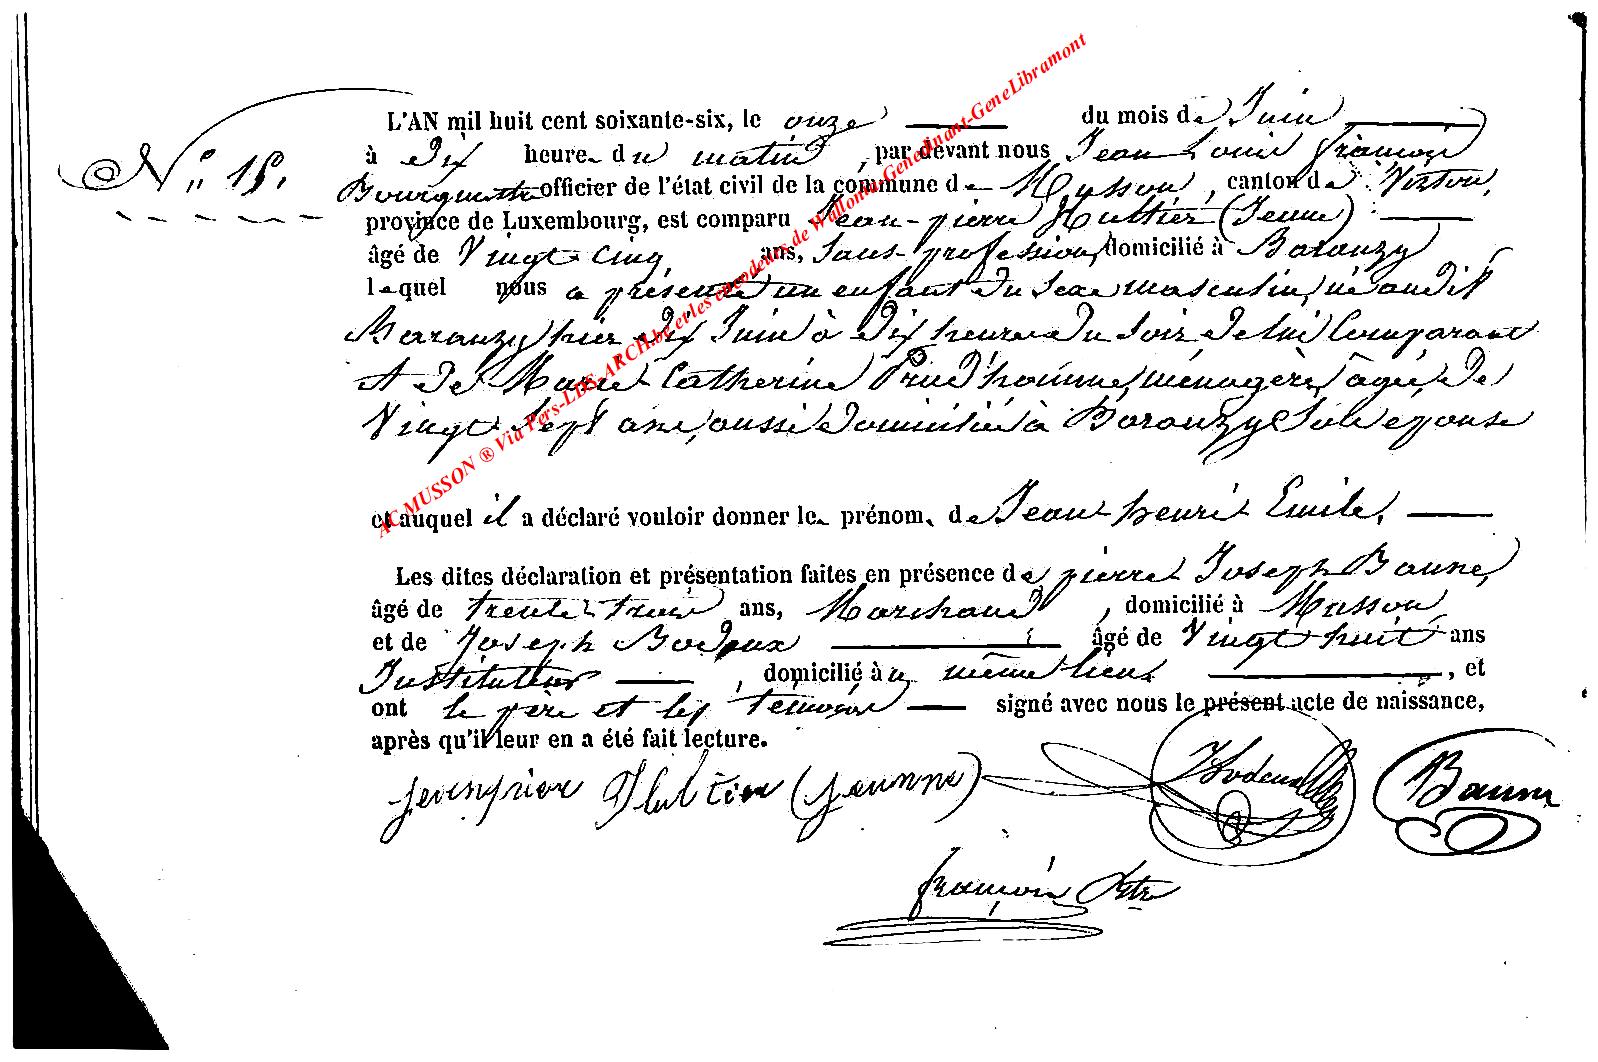 N° 15.
L'AN mil huit cent soixante-six, le onze du mois de Juin
à Dix heures du matin, par devant nous Jean Louis françois
officier de l'état civil de la commune de Musson, canton de Virton,
province de Luxembourg, est comparu Jean-pierre Huttier (Jeune)
âgé de Vingt cinq ans, Sans profession, domicilié à Baranzy
lequel nous a présenté un enfant du sexe masculin, né audit
Baranzy hier dix Juin à dix heures du soir de lui Comparant
et de Marie Catherine Prud'homme, ménagère, âgée de
Vingt Sept ans, aussi domiciliée à Baranzy Son épouse
et auquel il a déclaré vouloir donner le prénom de Jean henri Emile.
Les dites déclaration et présentation faites en présence de pierre Joseph Baune,
âgé de trente trois ans, Marchand, domicilié à Musson
et de Joseph Bodeux âgé de Vingt huit ans
Instituteur, domicilié au même lieu, et
ont le père et les témoins signé avec nous le présent acte de naissance,
après qu'il leur en a été fait lecture.
(jeunne) Baune
françois
AC MUSSON ® Via Pers-LDS-ARCH.be et les encodeurs de Wallonia-Genedinant-GeneLibramont